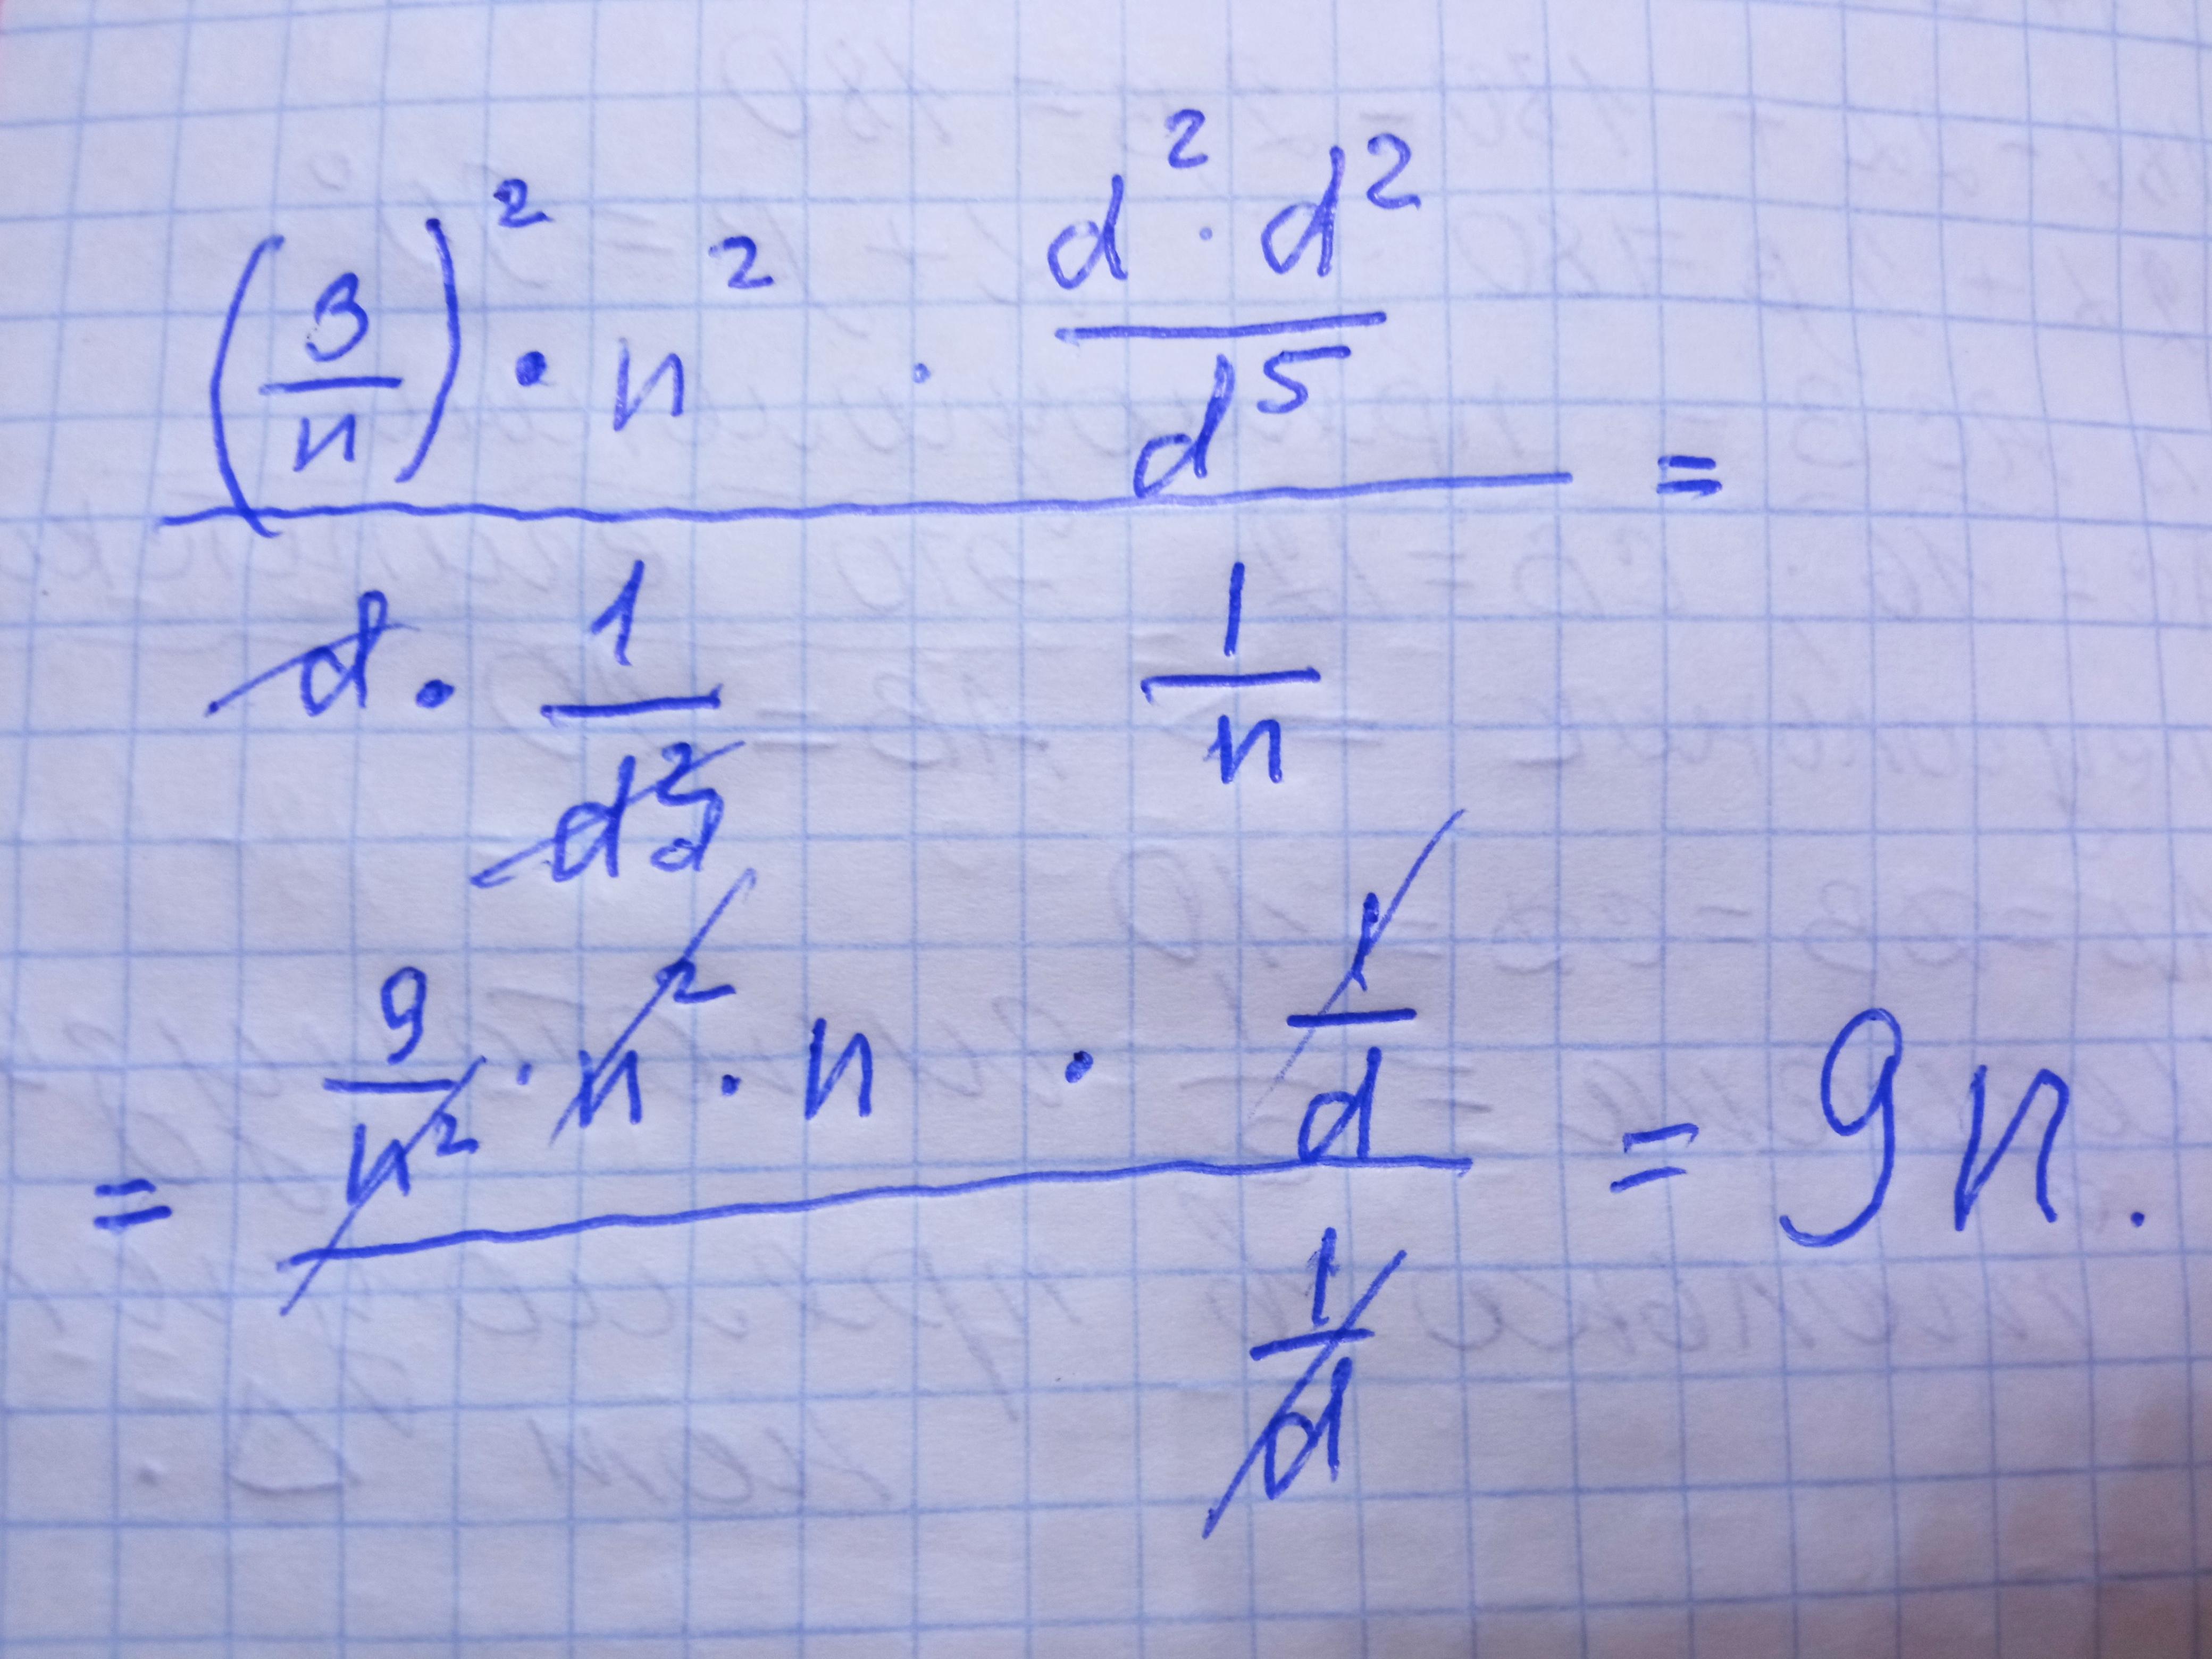 (3/n)² · n² · (d² · d²)/d⁵ =
d · 1/d² 1/n
= 9/n² · n² · n · 1/d = 9n.
1/d